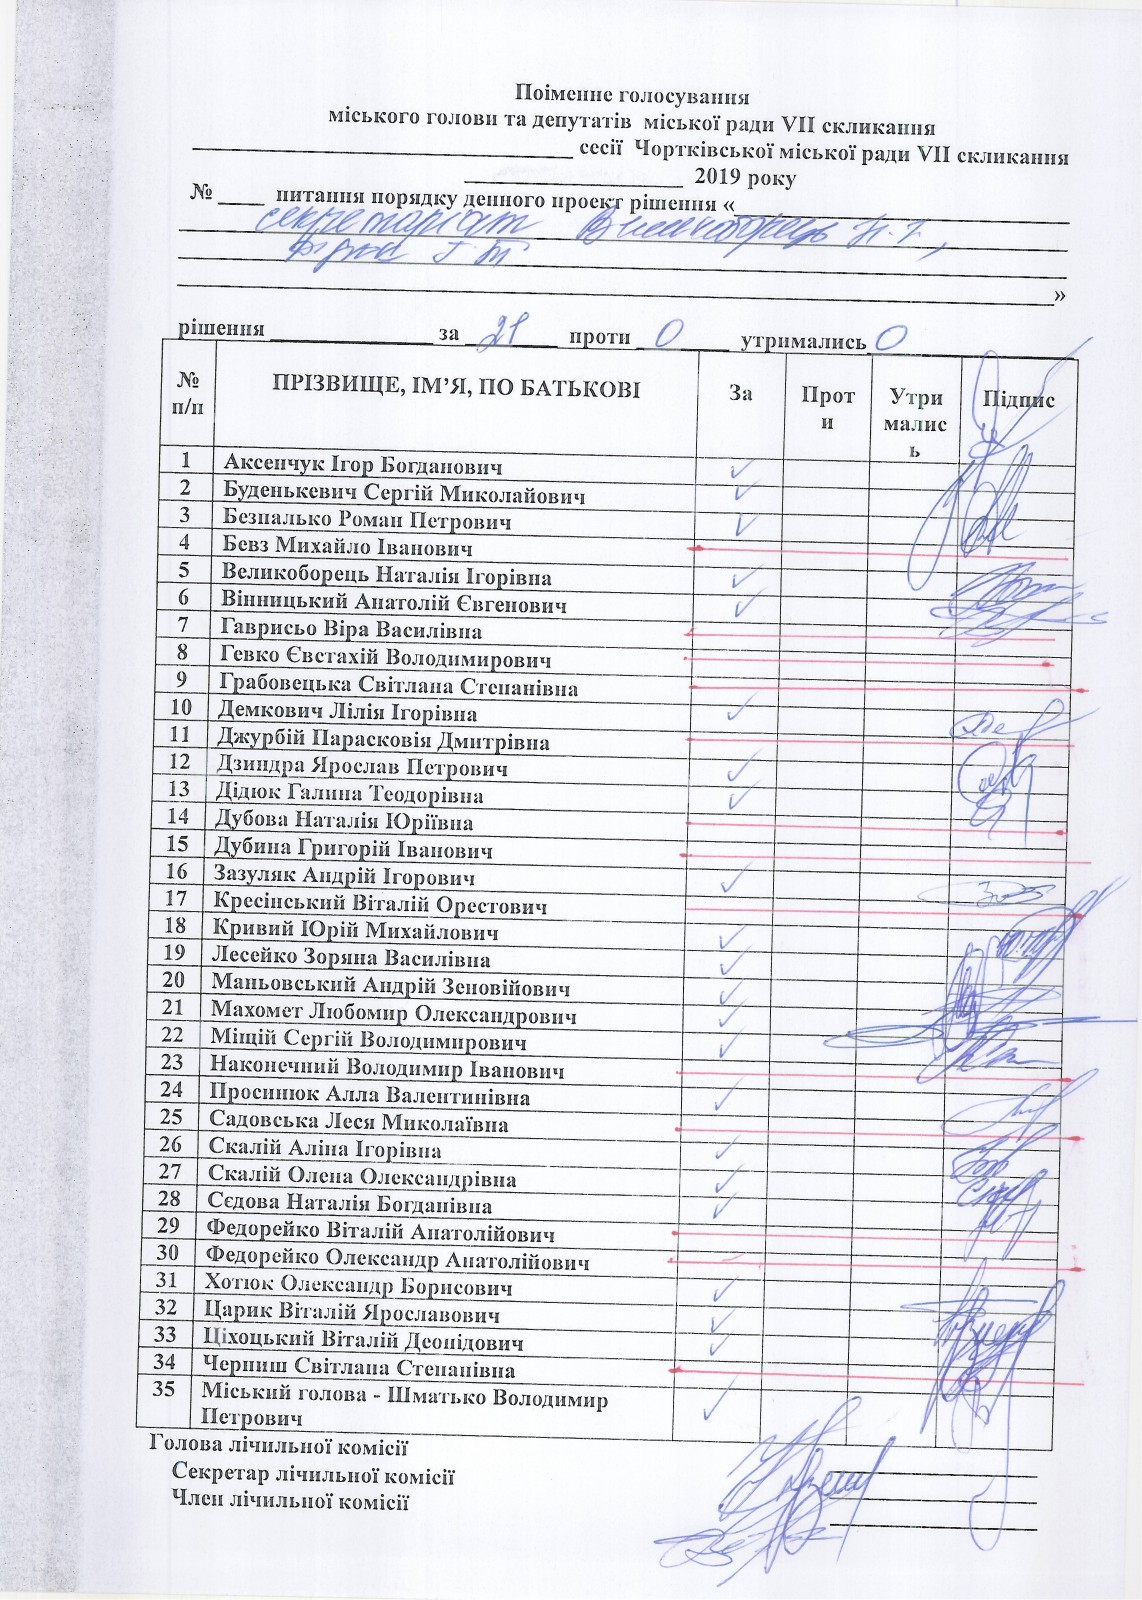 Поіменне голосування
міського голови та депутатів міської ради VII скликання
сесії Чортківської міської ради VII скликання
2019 року
№ ____ питання порядку денного проект рішення «
секретаріат Великоборець Н.І.,
»
рішення за 21 проти 0 утримались 0
№ п/п ПРІЗВИЩЕ, ІМ’Я, ПО БАТЬКОВІ За Проти Утрималсиь Підпис
1 Аксенчук Ігор Богданович ✓
2 Буденькевич Сергій Миколайович ✓
3 Безпалько Роман Петрович ✓
4 Бевз Михайло Іванович
5 Великоборець Наталія Ігорівна ✓
6 Вінницький Анатолій Євгенович ✓
7 Гаврисьо Віра Василівна
8 Гевко Євстахій Володимирович
9 Грабовецька Світлана Степанівна
10 Демкович Лілія Ігорівна ✓
11 Джурбій Парасковія Дмитрівна
12 Дзиндра Ярослав Петрович ✓
13 Дідюк Галина Теодорівна ✓
14 Дубова Наталія Юріївна
15 Дубина Григорій Іванович
16 Зазуляк Андрій Ігорович ✓
17 Кресінський Віталій Орестович
18 Кривий Юрій Михайлович ✓
19 Лесейко Зоряна Василівна ✓
20 Маньовський Андрій Зеновійович ✓
21 Махомет Любомир Олександрович ✓
22 Міщій Сергій Володимирович ✓
23 Наконечний Володимир Іванович
24 Просинюк Алла Валентинівна ✓
25 Садовська Леся Миколаївна
26 Скалій Аліна Ігорівна ✓
27 Скалій Олена Олександрівна ✓
28 Сєдова Наталія Богданівна ✓
29 Федорейко Віталій Анатолійович
30 Федорейко Олександр Анатолійович
31 Хотюк Олександр Борисович ✓
32 Царик Віталій Ярославович ✓
33 Ціхоцький Віталій Деонідович ✓
34 Черниш Світлана Степанівна
35 Міський голова - Шматько Володимир ✓
Петрович
Голова лічильної комісії
Секретар лічильної комісії
Член лічильної комісії